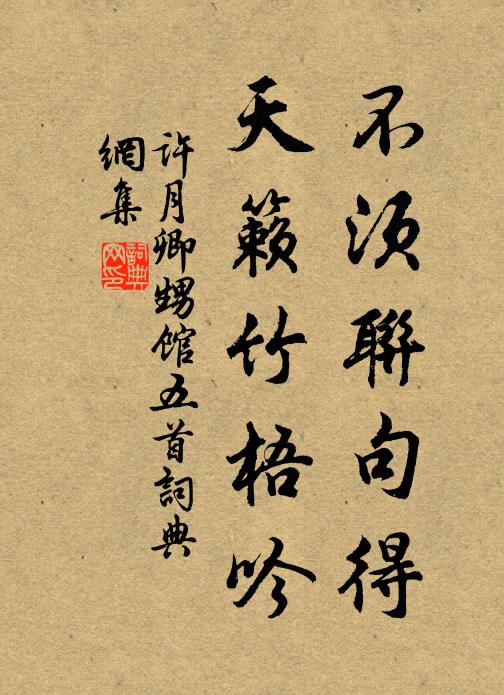 不須聯句得
天籟竹梧吟
許月卿甥館五首詞典
網集
詞典
网印